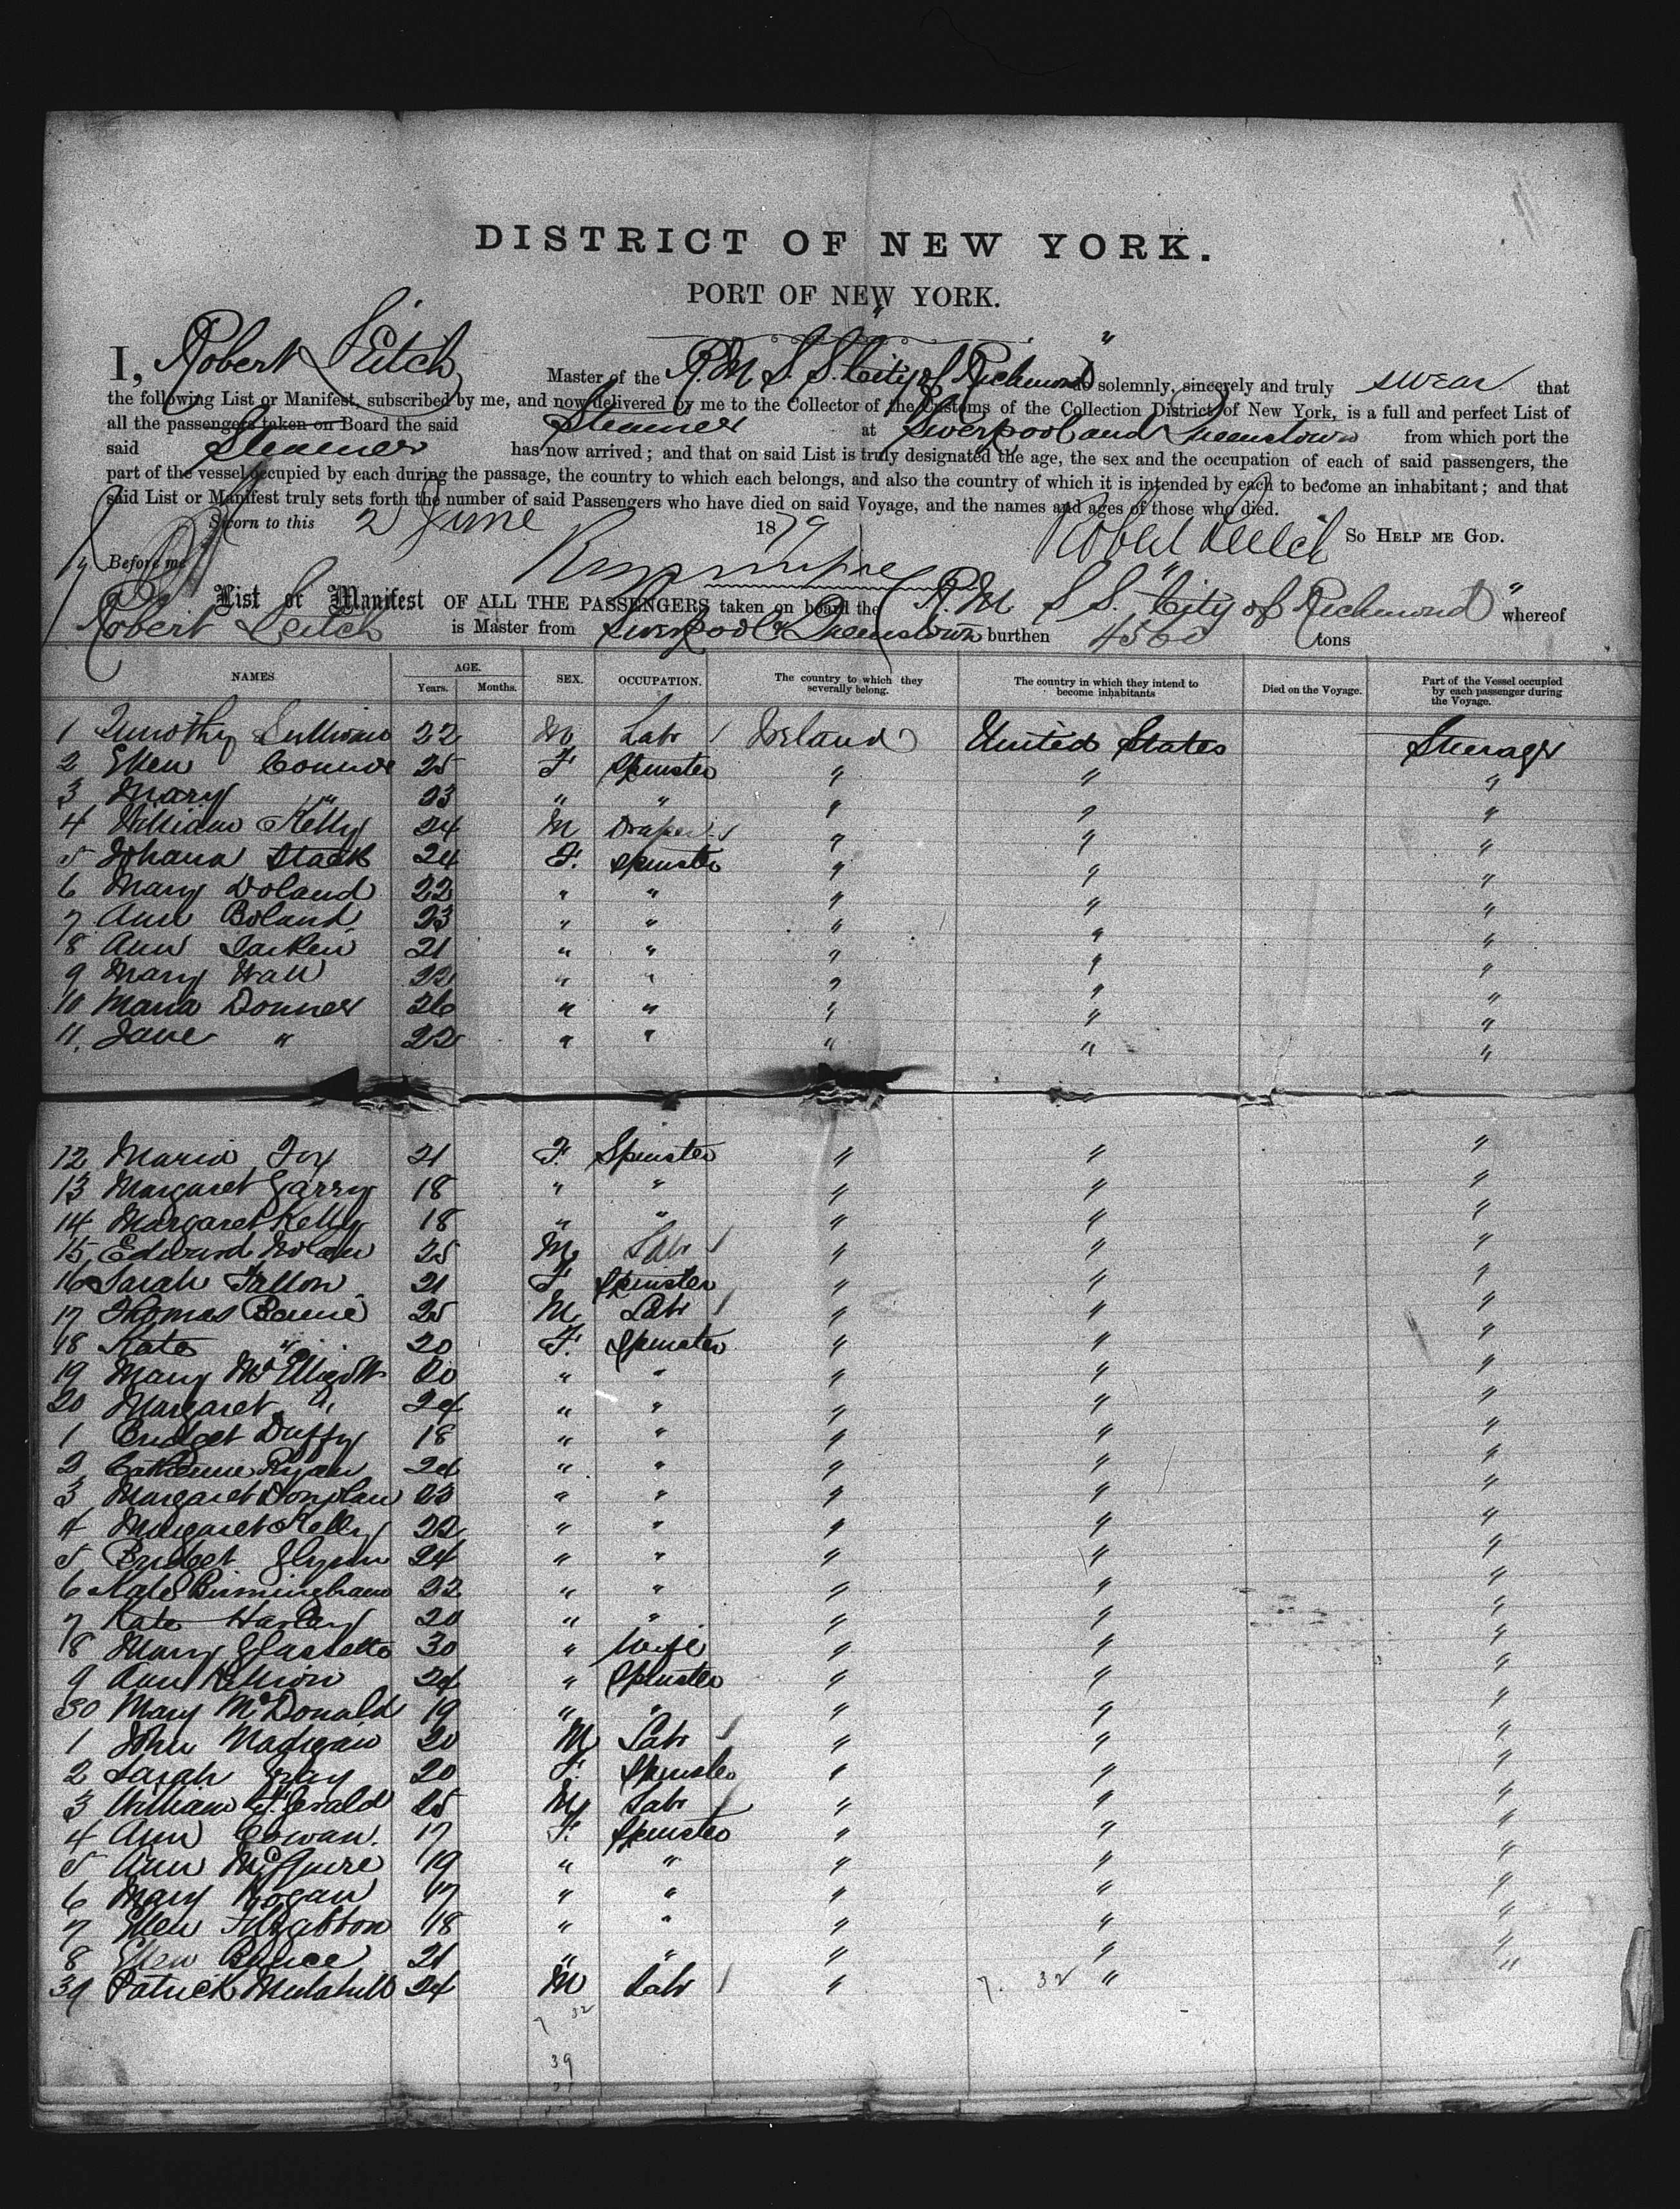 DISTRICT OF NEW YORK.
PORT OF NEW YORK.
I, Robert Leitch Master of the R.M.S.S. "City of Richmond" do solemnly, sincerely and truly swear that
the following List or Manifest, subscribed by me, and now delivered by me to the Collector of the Customs of the Collection District of New York, is a full and perfect List of
all the passengers taken on Board the said Steamer at Liverpool and Queenstown from which port the
said Steamer has now arrived; and that on said List is truly designated the age, the sex and the occupation of each of said passengers, the
part of the vessel occupied by each during the passage, the country to which each belongs, and also the country of which it is intended by each to become an inhabitant; and that
said List or Manifest truly sets forth the number of said Passengers who have died on said Voyage, and the names and ages of those who died.
Sworn to this 2 June 1879 Robert Leitch So Help me God.
Before me
List or Manifest OF ALL THE PASSENGERS taken on board the R.M. S.S. "City of Richmond" whereof
Robert Leitch is Master from Liverpool & Queenstown burthen 4560 tons
NAMES AGE. Years. Months. SEX. OCCUPATION. The country to which they severally belong. The country in which they intend to become inhabitants Died on the Voyage. Part of the Vessel occupied by each passenger during the Voyage.
1 Timothy Sullivan 22 M Labr / Ireland United States Steerage
2 Ellen Connor 25 F Spinster " " "
3 Mary " 23 " " " " "
4 William Kelly 24 M Draper / " " "
5 Johana Stack 24 F. Spinster " " "
6 Mary Doland 22 " " " " "
7 Ann Boland 23 " " " " "
8 Ann Larken 21 " " " " "
9 Mary Wall 22 " " " " "
10 Maria Donner 26 " " " " "
11. Jane " 22 " " " " "
12 Maria Fox 21 F. Spinster " " "
13 Margaret Garry 18 " " " " "
14 Margaret Kelly 18 " " " " "
15 Edward Nolan 25 M Labr / " " "
16 Sarah Fallon 21 F Spinster " " "
17 Thomas Barrie 25 M Labr / " " "
18 Kate " 20 F. Spinster " " "
19 Mary McElligott 20 " " " " "
20 Margaret " 24 " " " " "
1 Bridget Duffy 18 " " " " "
2 Catherine Ryan 24 " " " " "
3 Margaret Donolan 23 " " " " "
4 Margaret Kelly 22 " " " " "
5 Bridget Glynn 24 " " " " "
6 Kate Birmingham 22 " " " " "
7 Kate Harley 20 " " " " "
8 Mary 30 " Wife " " "
9 Ann 24 " Spinster " " "
30 Mary McDonald 19 " " " " "
1 John Madigan 20 M Labr / " " "
2 Sarah Gray 20 F. Spinster " " "
3 William Ft.Gerald 25 M Labr / " " "
4 Ann Cowan. 17 F. Spinster " " "
5 Ann McGuire 19 " " " " "
6 Mary Hogan 17 " " " " "
7 Ellen Fitzgibbon 18 " " " " "
8 Ellen 21 " " " " "
39 Patrick Mulahill 24 M Labr / " 7. 32 "
7 32
39